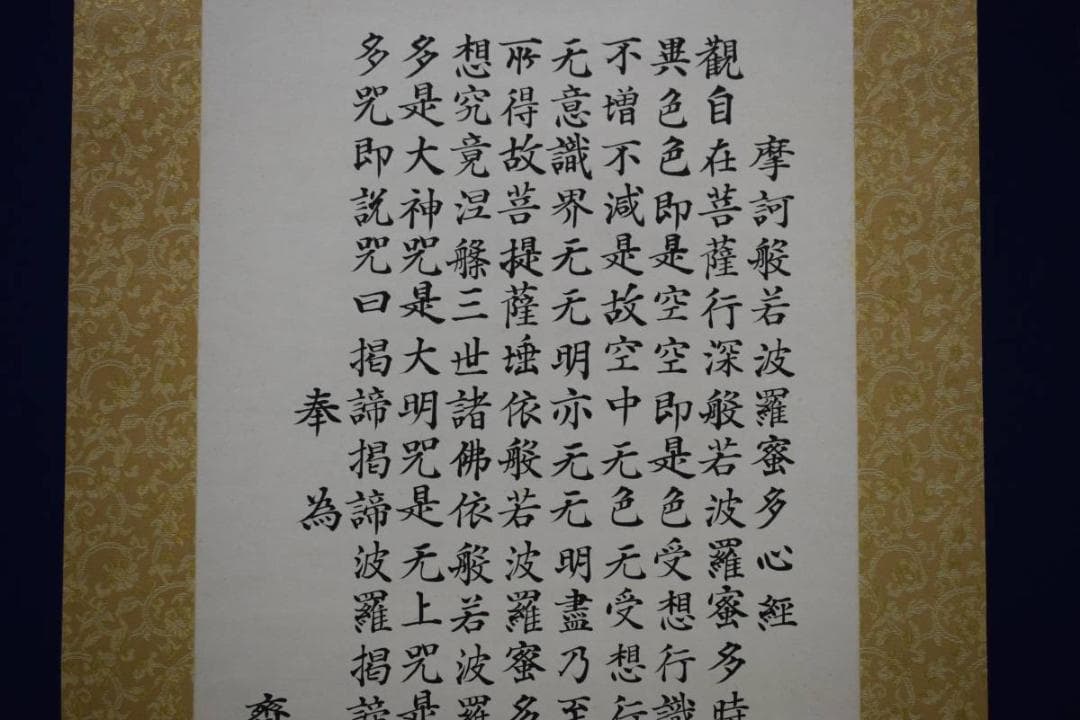 摩訶般若波羅蜜多心経
觀自在菩薩行深般若波羅蜜多時
異色色即是空空即是色受想行識
不増不減是故空中无色无受想行
无意識界无无明亦无无明盡乃至
所得故菩提薩埵依般若波羅蜜多
想究竟涅槃三世諸佛依般若波羅
多是大神咒是大明咒是无上咒是
多咒即説咒曰掲諦掲諦波羅掲諦
奉為